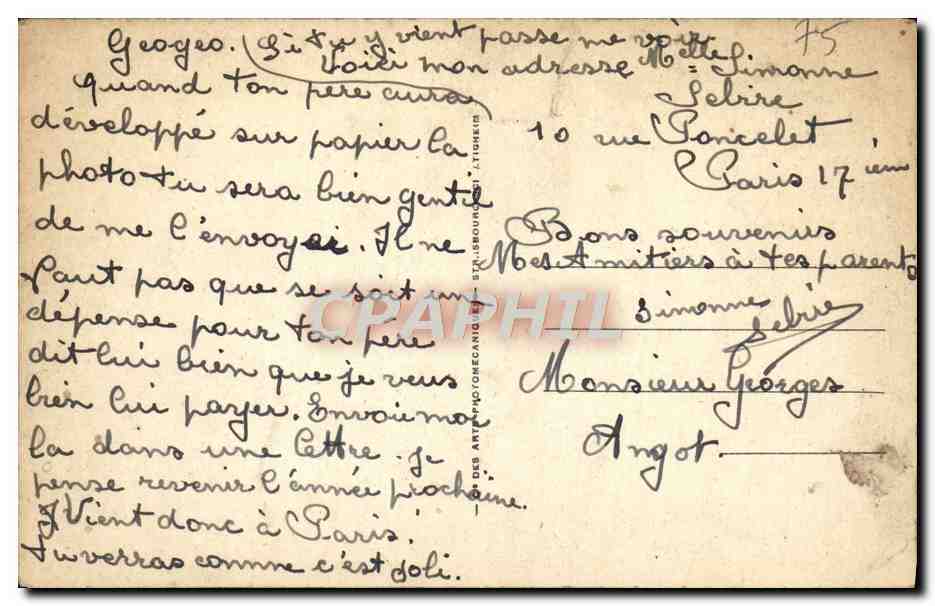 Geogeo. Si tu y vient passe me voir
Voici mon adresse Melle Simonne
Lebire
10 rue Poncelet
Paris 17 ième
75
quand ton père aura
développé sur papier la
photo tu sera bien gentil
de me l'envoyer. Il ne
faut pas que se soit un
dépense pour ton père
dit lui bien que je veus
bien lui payer. Envoie moi
la dans une lettre. je
pense revenir l'année prochaine.
Vient donc à Paris.
tu verras comme c'est joli.
Bons souvenirs
Mes Amitiers à tes parents
Simonne
Lebrie
Monsieur Georges
Angot.
DES ARTS PHOTOMECANIQUES
CPAPHIL